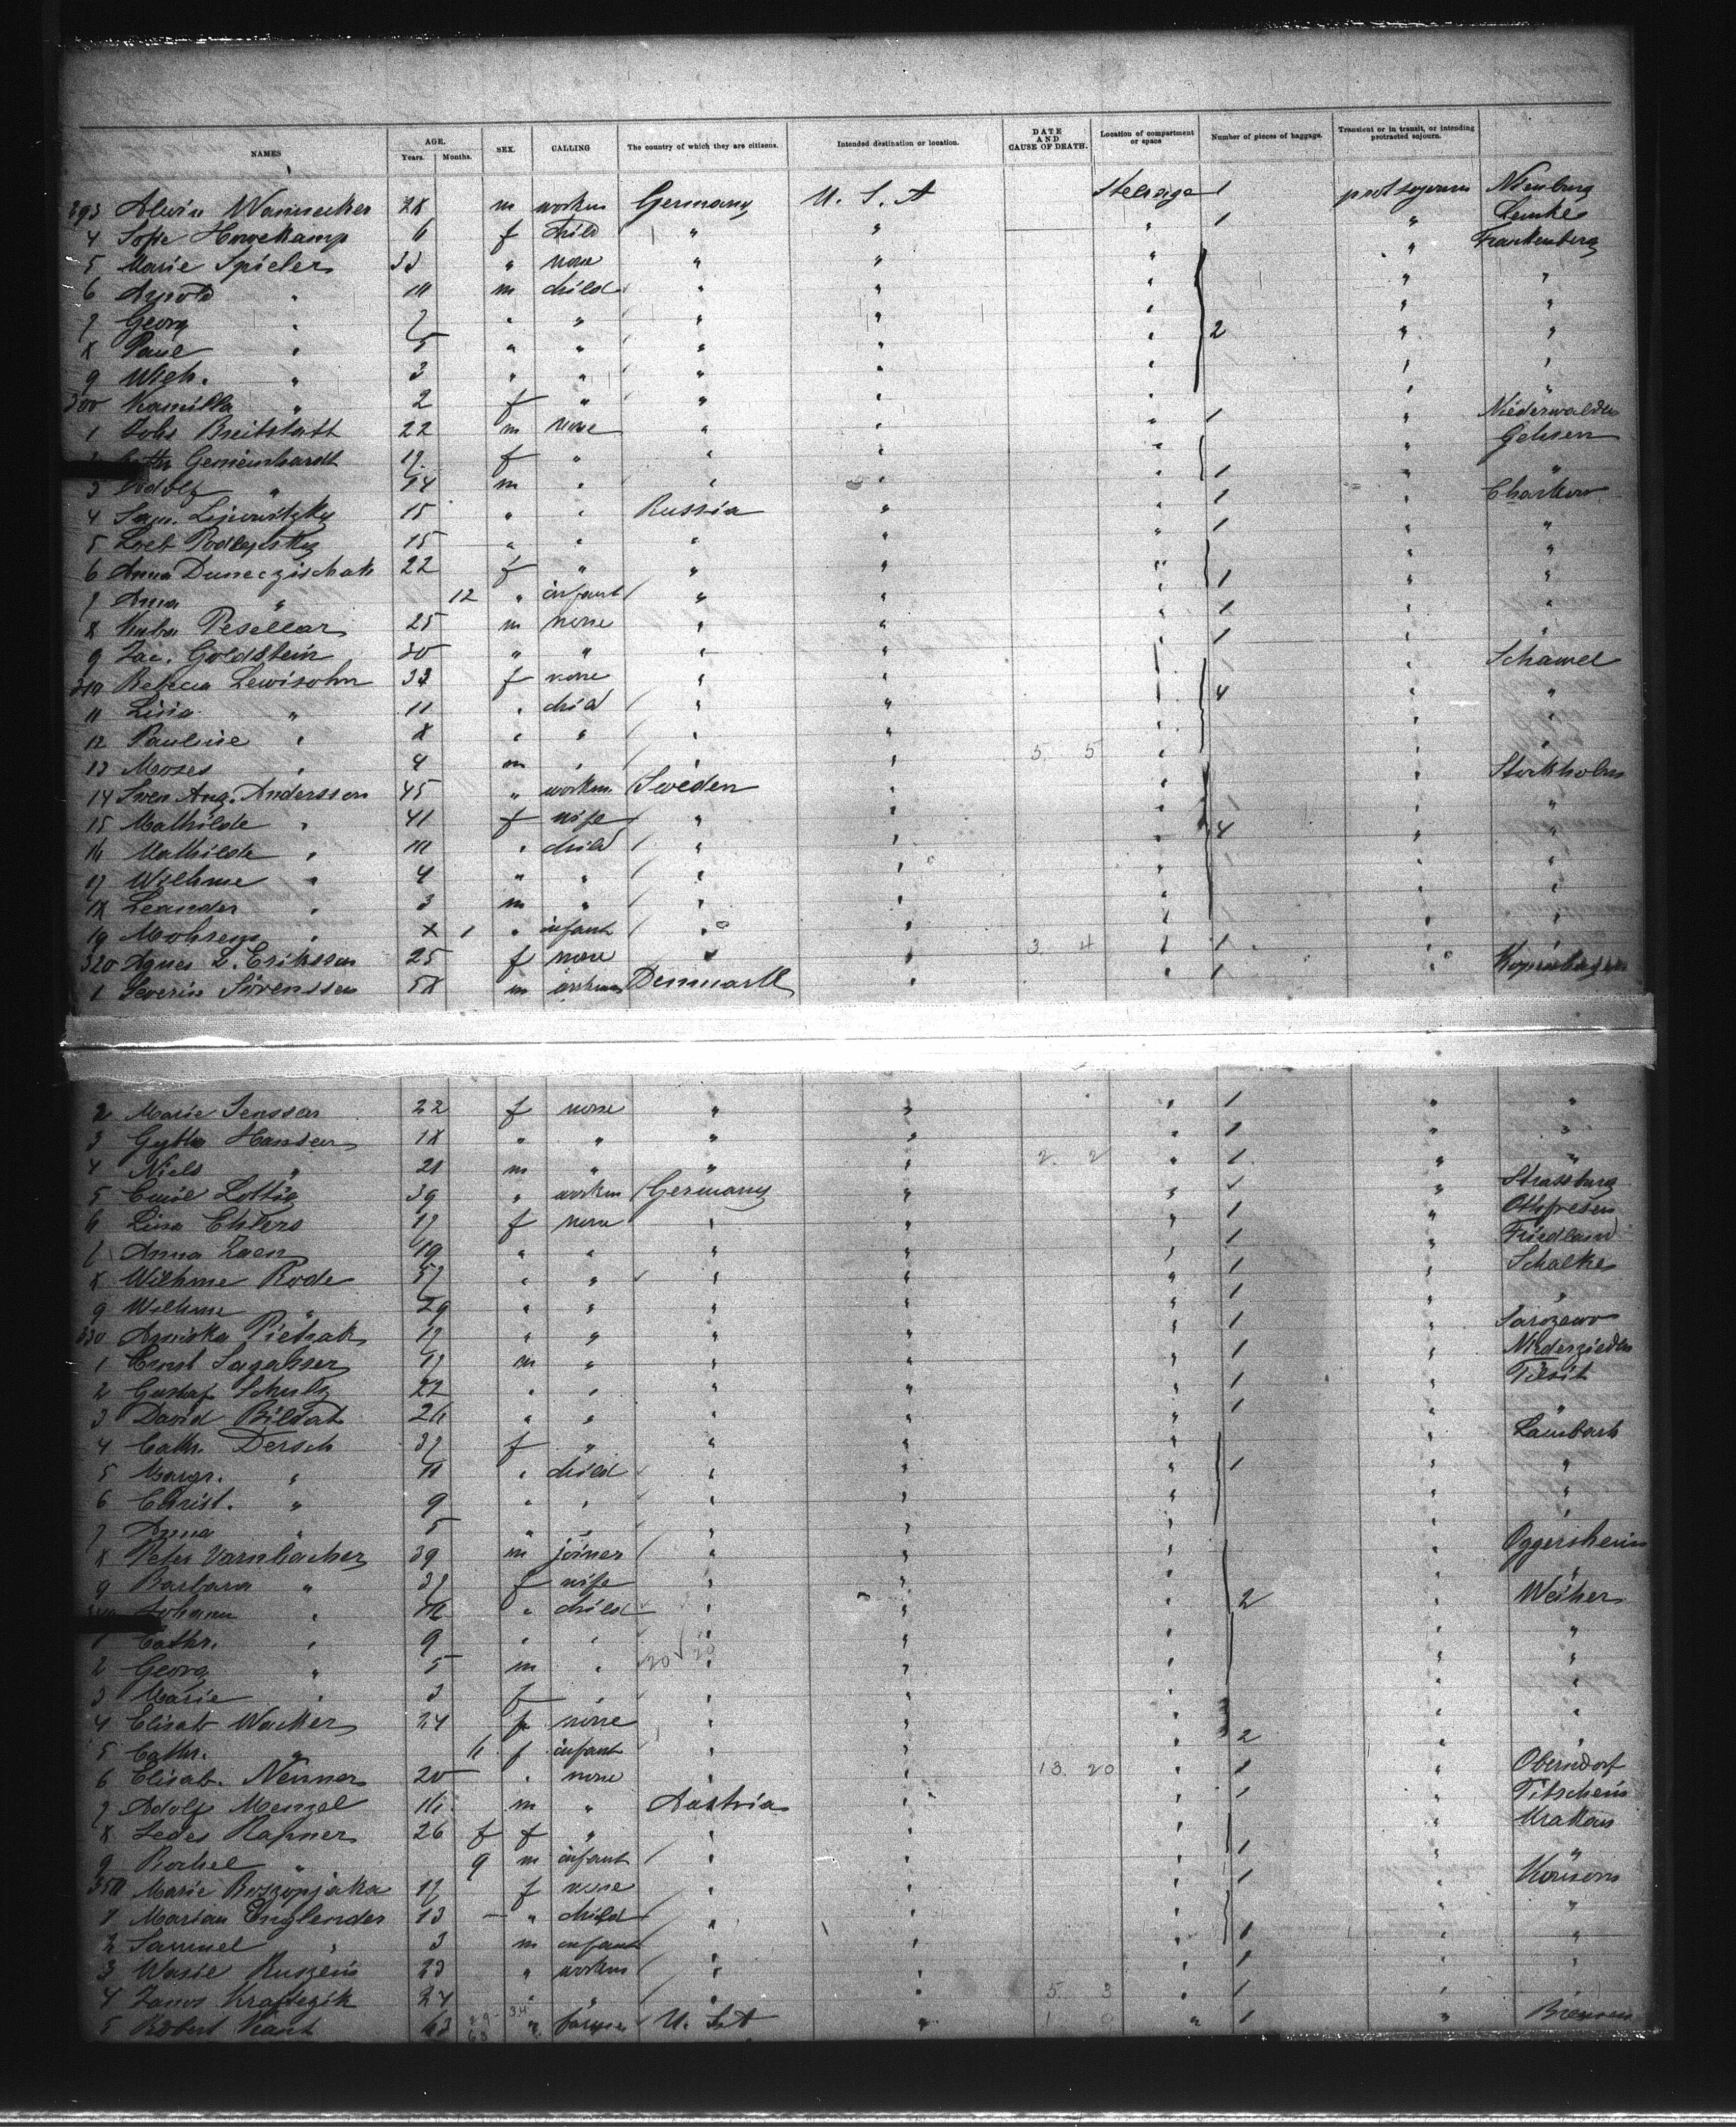 NAMES AGE. Years. Months. SEX. CALLING The country of which they are citizens. Intended destination or location. DATE AND CAUSE OF DEATH. Location of compartment or space Number of pieces of baggage. Transient or in transit, or intending protracted sojourn.
293 Alwin Wannecker 28 m workm Germany U. S. A Steerage 1 prot sojourn Nienburg
4 Hovekamp 6 f child " " " 1 " Lemke
5 Marie Spieler 33 " none " " " " Frankenberg
6 Arnold " 10 m child " " " " "
7 Georg " 7 " " " " " " "
8 Paul " 5 " " " " " 2 " "
9 Wilh. " 3 " " " " " " "
300 Kamilla " 2 f " " " " " "
1 Johs Breitstatt 22 m none " " " 1 "
Gemeinhardt 17 f " " " " " Gehren
3 Rudolf " 14 m " " " " 1 " "
4 Sam. 15 " " Russia " " 1 " Charkow
5 Loeb 15 " " " " " 1 " "
6 Anna Duneczischak 22 f " " " " " "
7 Anna " 12 " infant " " " 1 " "
8 25 m none " " " 1 " "
9 Jac. Goldstein 30 " " " " " 1 " "
310 Rebecca Lewisohn 33 f none " " " " Schawel
11 Lisia " 11 " child " " " 4 " "
12 Pauline " 8 " " " " " " "
13 Moses " 4 m " " " 3. 5 " " "
14 Sven Aug. Andersson 45 " workm. Sweden " " " Stockholm
15 Mathilde " 41 f wife " " " " "
16 Mathilde " 10 " child " " " 4 " "
17 Wilhme " 4 " " " " " " "
18 Leander " 3 m " " " " " "
19 " 1 " infant " " " " "
320 Agnes L. Eriksson 25 f none " " 3. 4 " 1 "
1 Severin Sörenssen 58 m workm Denmark " " 1 " Kopenhagen
2 Marie Jenssen 22 f none " " " 1 " "
3 Gytha Hansen 18 " " " " " 1 " "
4 Niels " 21 m " " " 2. 2 " 1 " "
5 Emil Lottig 39 " workm Germany " " " Strassburg
6 Lina Ehlers 17 f none " " " 1 " Othfresen
7 Anna Zaen 19 " " " " " 1 " Friedland
8 Wilhme Rode 57 " " " " " 1 " Schalke
9 Wilhme " 29 " " " " " 1 " "
330 Agniska Pietrak 17 " " " " " 1 " Sarozewo
1 Ernst Sagasser 17 m " " " " 1 "
2 Gustaf Schulz 22 " " " " " 1 " Tilsit
3 David Bildat 26 " " " " " 1 " "
4 Cath. Dersch 37 f " " " " "
5 Margr. " 11 " child " " " 1 " "
6 Christ. " 9 " " " " " " "
7 Anna " 5 " " " " " " "
8 Peter Varnbacher 39 m joiner " " " " Oggersheim
9 Barbara " 37 f wife " " " " "
340 Johann " 10 " child " " " 2 " Weiher
1 Cathr. " 9 " " " " " " "
2 Georg " 5 m " 20 20 " " " "
3 Marie " 3 f " " " " " "
4 Elisab Wacker 24 f none " " " " "
5 Cathr. " 6 f infant " " " 2 " "
6 Elisab. Nenner 20 " none " " 13. 20 " 1 " Oberndorf
7 Adolf Menzel 16 m " Austria " " 1 "
8 26 f f " " " " " Krakau
9 Rachel " 9 m infant " " " 1 " "
350 Marie 17 f none " " " 1 "
1 Marian Englender 13 " child " " " " "
2 Samuel " 3 m infant " " " 1 " "
3 Wasil 23 " workm " " " 1 " "
4 Janos 24 " " " " 5. 3 " 1 " "
5 Robert Kant 63 " farmer U. S. A " 1 " 1 " Bremen